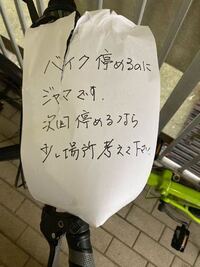 バイク停めるのに
ジャマです。
次回停めるなら
少し場所考えて下さい